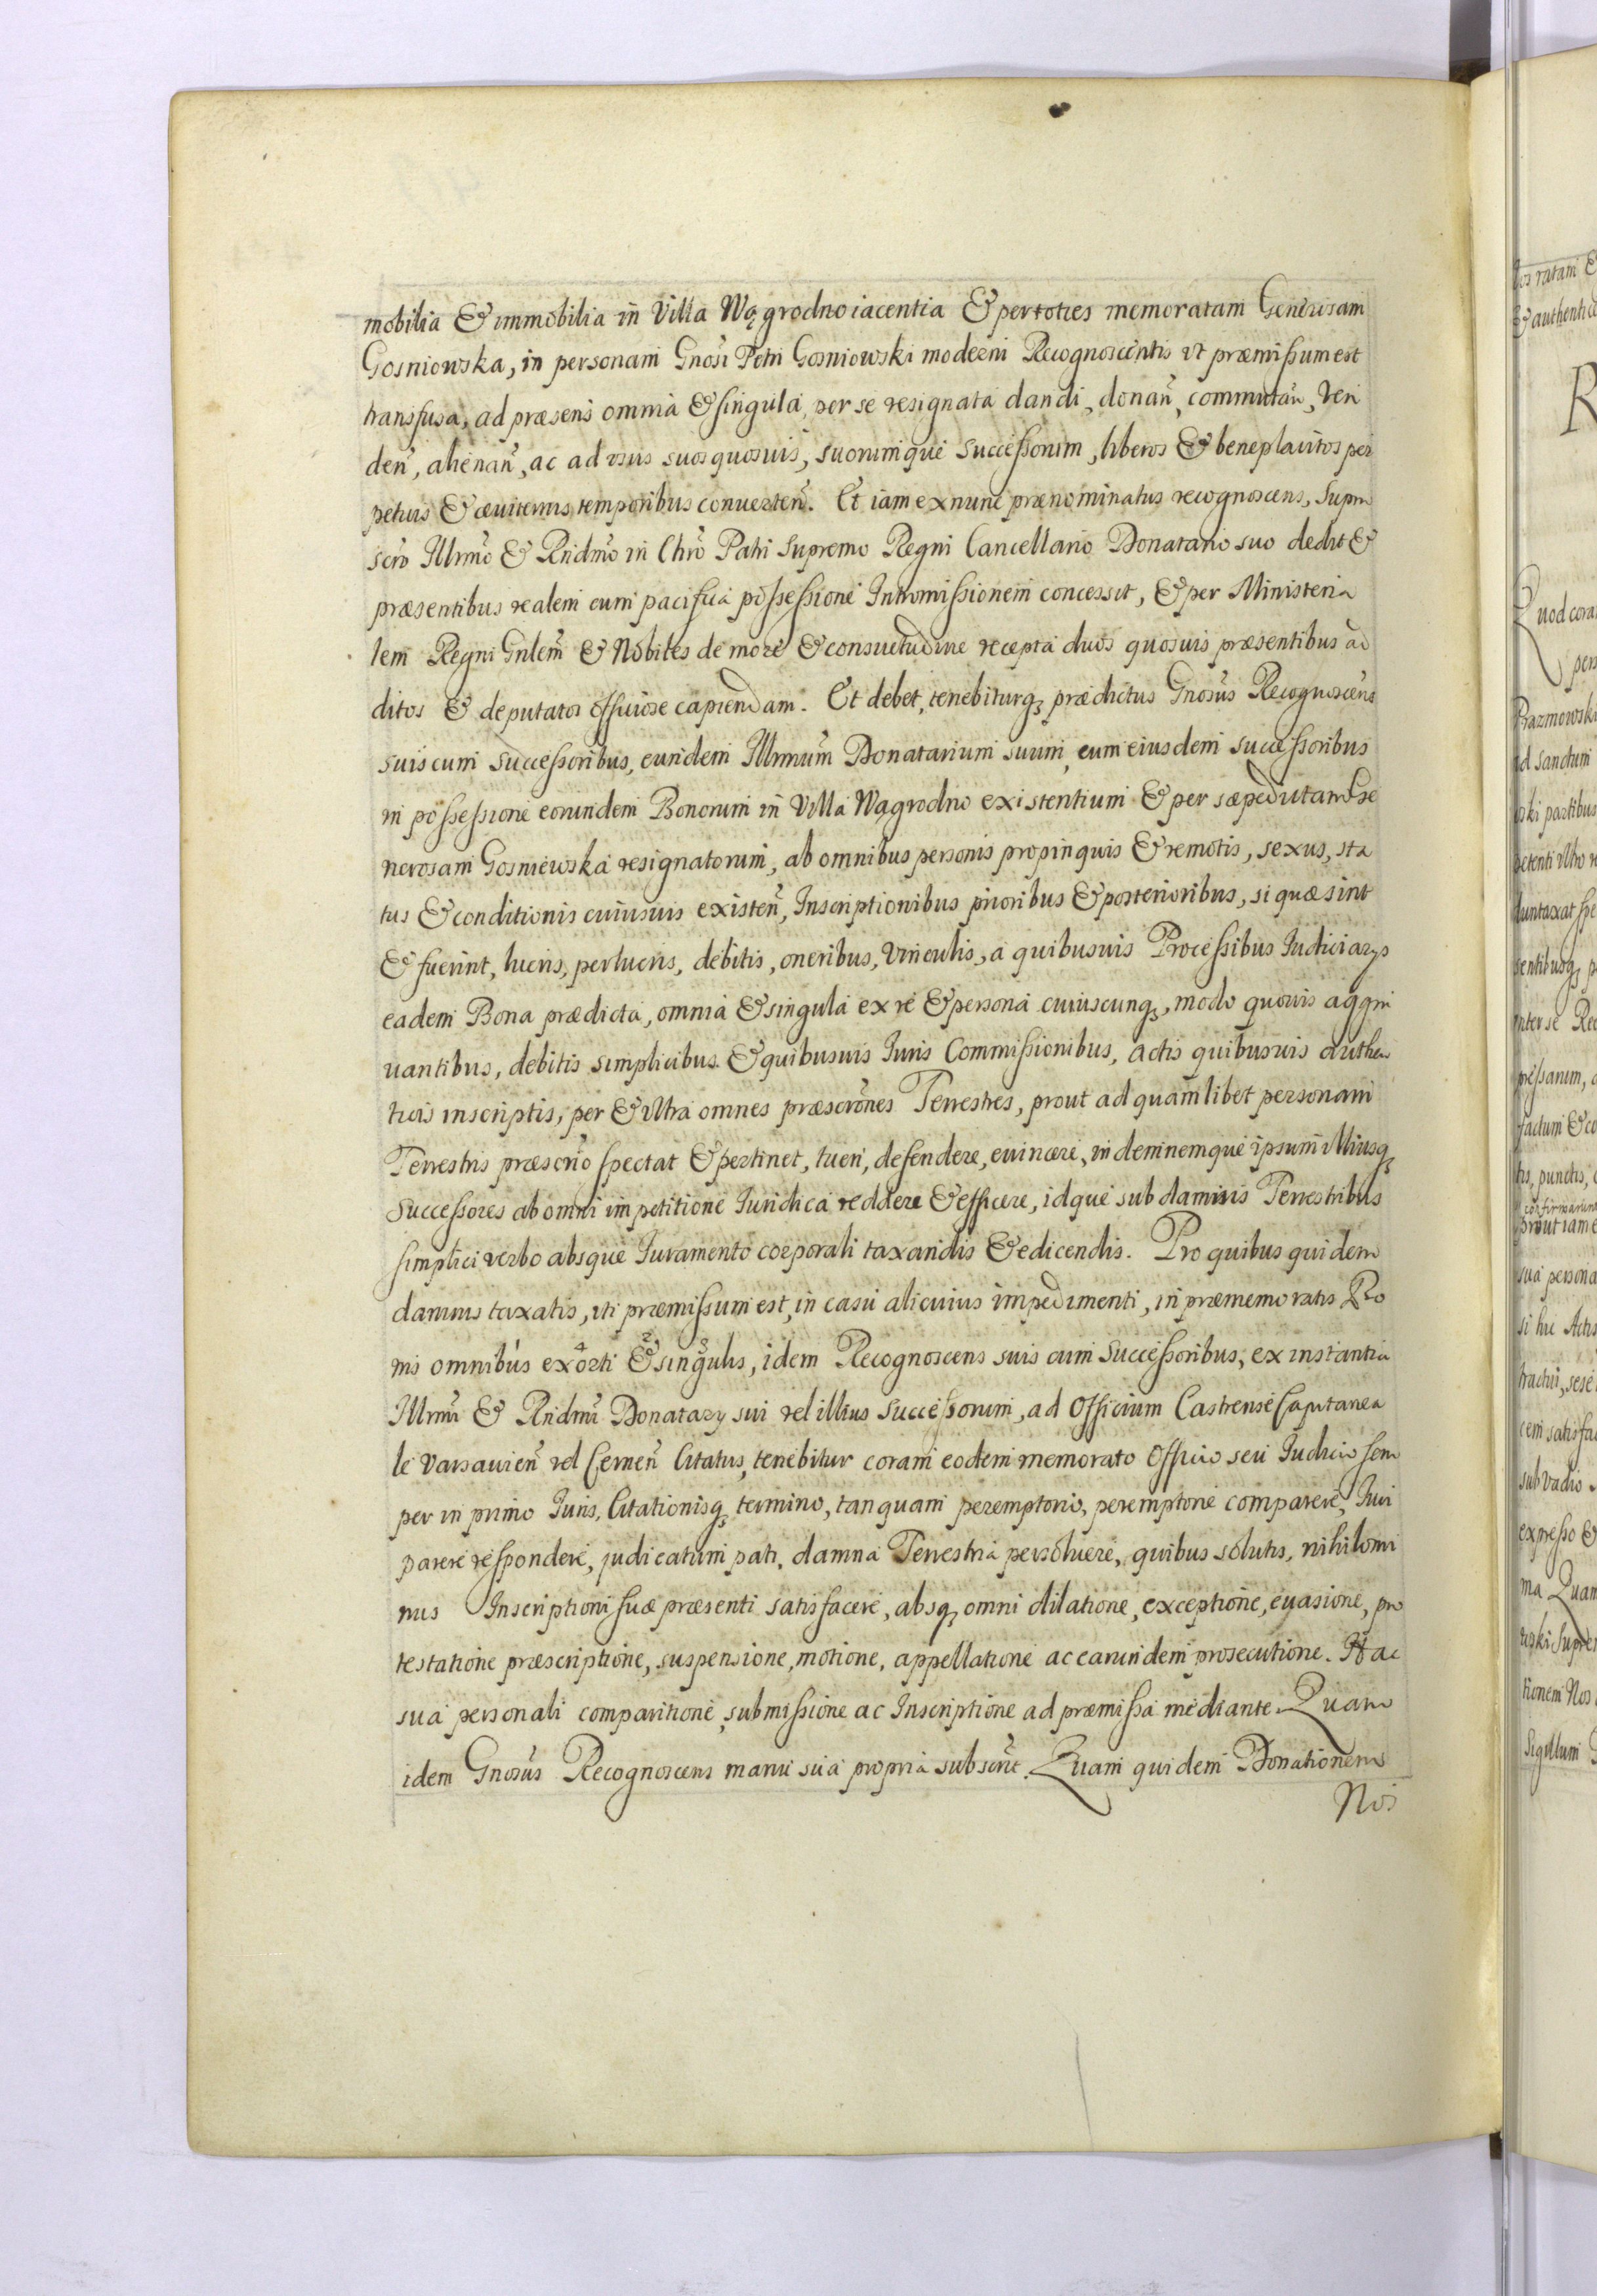 mobilia & immobilia in Villa Wągrodno iacentia & per toties memoratam Generosam
Gosniowska, in personam Gnosi Petri Gosniowski moderni Recognoscentis ut præmissum est
transfusa, ad præsens omnia & singula, per se resignata dandi, donan̄, commutan̄, Ven
den̄, alienan̄, ac ad usus suos quosuis, suorumque Successorum, liberos & beneplacitos per
petuis & æuiternis temporibus conuerten̄. Et iam ex nunc prænominatus recognoscens, Supra
scr̄o Illrmo & Rndmo in Chro Patri Supremo Regni Cancellario Donatario suo dedit &
præsentibus realem cum pacifica possessione Intromissionem concessit, & per Ministeria
lem Regni Gnlem & Nobiles de more & consuetudine recepta duos quosuis præsentibus ad
ditos & deputatos officiose capiendam. Et debet, tenebiturq, prædictus Gnosus Recognoscens
suis cum Successoribus, eundem Illrmum Donatarium suum, cum eiusdem successoribus
in possessione eorundem Bonorum in Villa Wągrodno existentium & per sæpedictam Ge
nerosam Gosniewska resignatorum, ab omnibus personis propinquis & remotis, sexus, sta
tus & conditionis cuiusuis existen̄, Inscriptionibus prioribus & posterioribus, si quæ sint
& fuerint, lucris, perlucris, debitis, oneribus, Vinculis, a quibusuis Processibus Iudiciarys
eadem Bona prædicta, omnia & singula ex re & persona cuiuscunq, modo quouis aggra
uantibus, debitis simplicibus & quibusuis Iuris Commissionibus, actis quibusuis authen
ticis inscriptis, per & ultra omnes præscrōnes Terrestres, prout ad quamlibet personam
Terrestris præscrio spectat & pertinet, tueri, defendere, euincere, indemnemque ipsum illiusq
Successores ab omni impetitione Iuridica reddere & efficere, idque sub damnis Terrestribus
simplici verbo absque Iuramento corporali taxandis & edicendis. Pro quibus quidem
damnis taxatis, uti præmissum est, in casu alicuius impedimenti, in præmemoratis Bo
nis omnibus exorti & singulis, idem Recognoscens suis cum Successoribus, ex instantia
Illrmi & Rndmi Donatary sui vel illius Successorum, ad Officium Castrense Capitanea
le Varsauien̄ vel Cernen̄ Citatus, tenebitur coram eodem memorato Officio seu Iudicio sem
per in primo Iuris, Citationisq termino, tanquam peremptorio, peremptorie comparere, Iuri
parere respondere, judicatum pati, damna Terrestria persoluere, quibus solutis, nihilomi
nus Inscriptioni suæ præsenti satisfacere, absq omni dilatione, exceptione, euasione, pro
testatione præscriptione, suspensione, motione, appellatione ac earundem prosecutione. Hac
sua personali comparitione, submissione ac Inscriptione ad præmissa mediante. Quam
idem Gnosus Recognoscens manu sua propria subscrit. Quam quidem Donationem
Nos